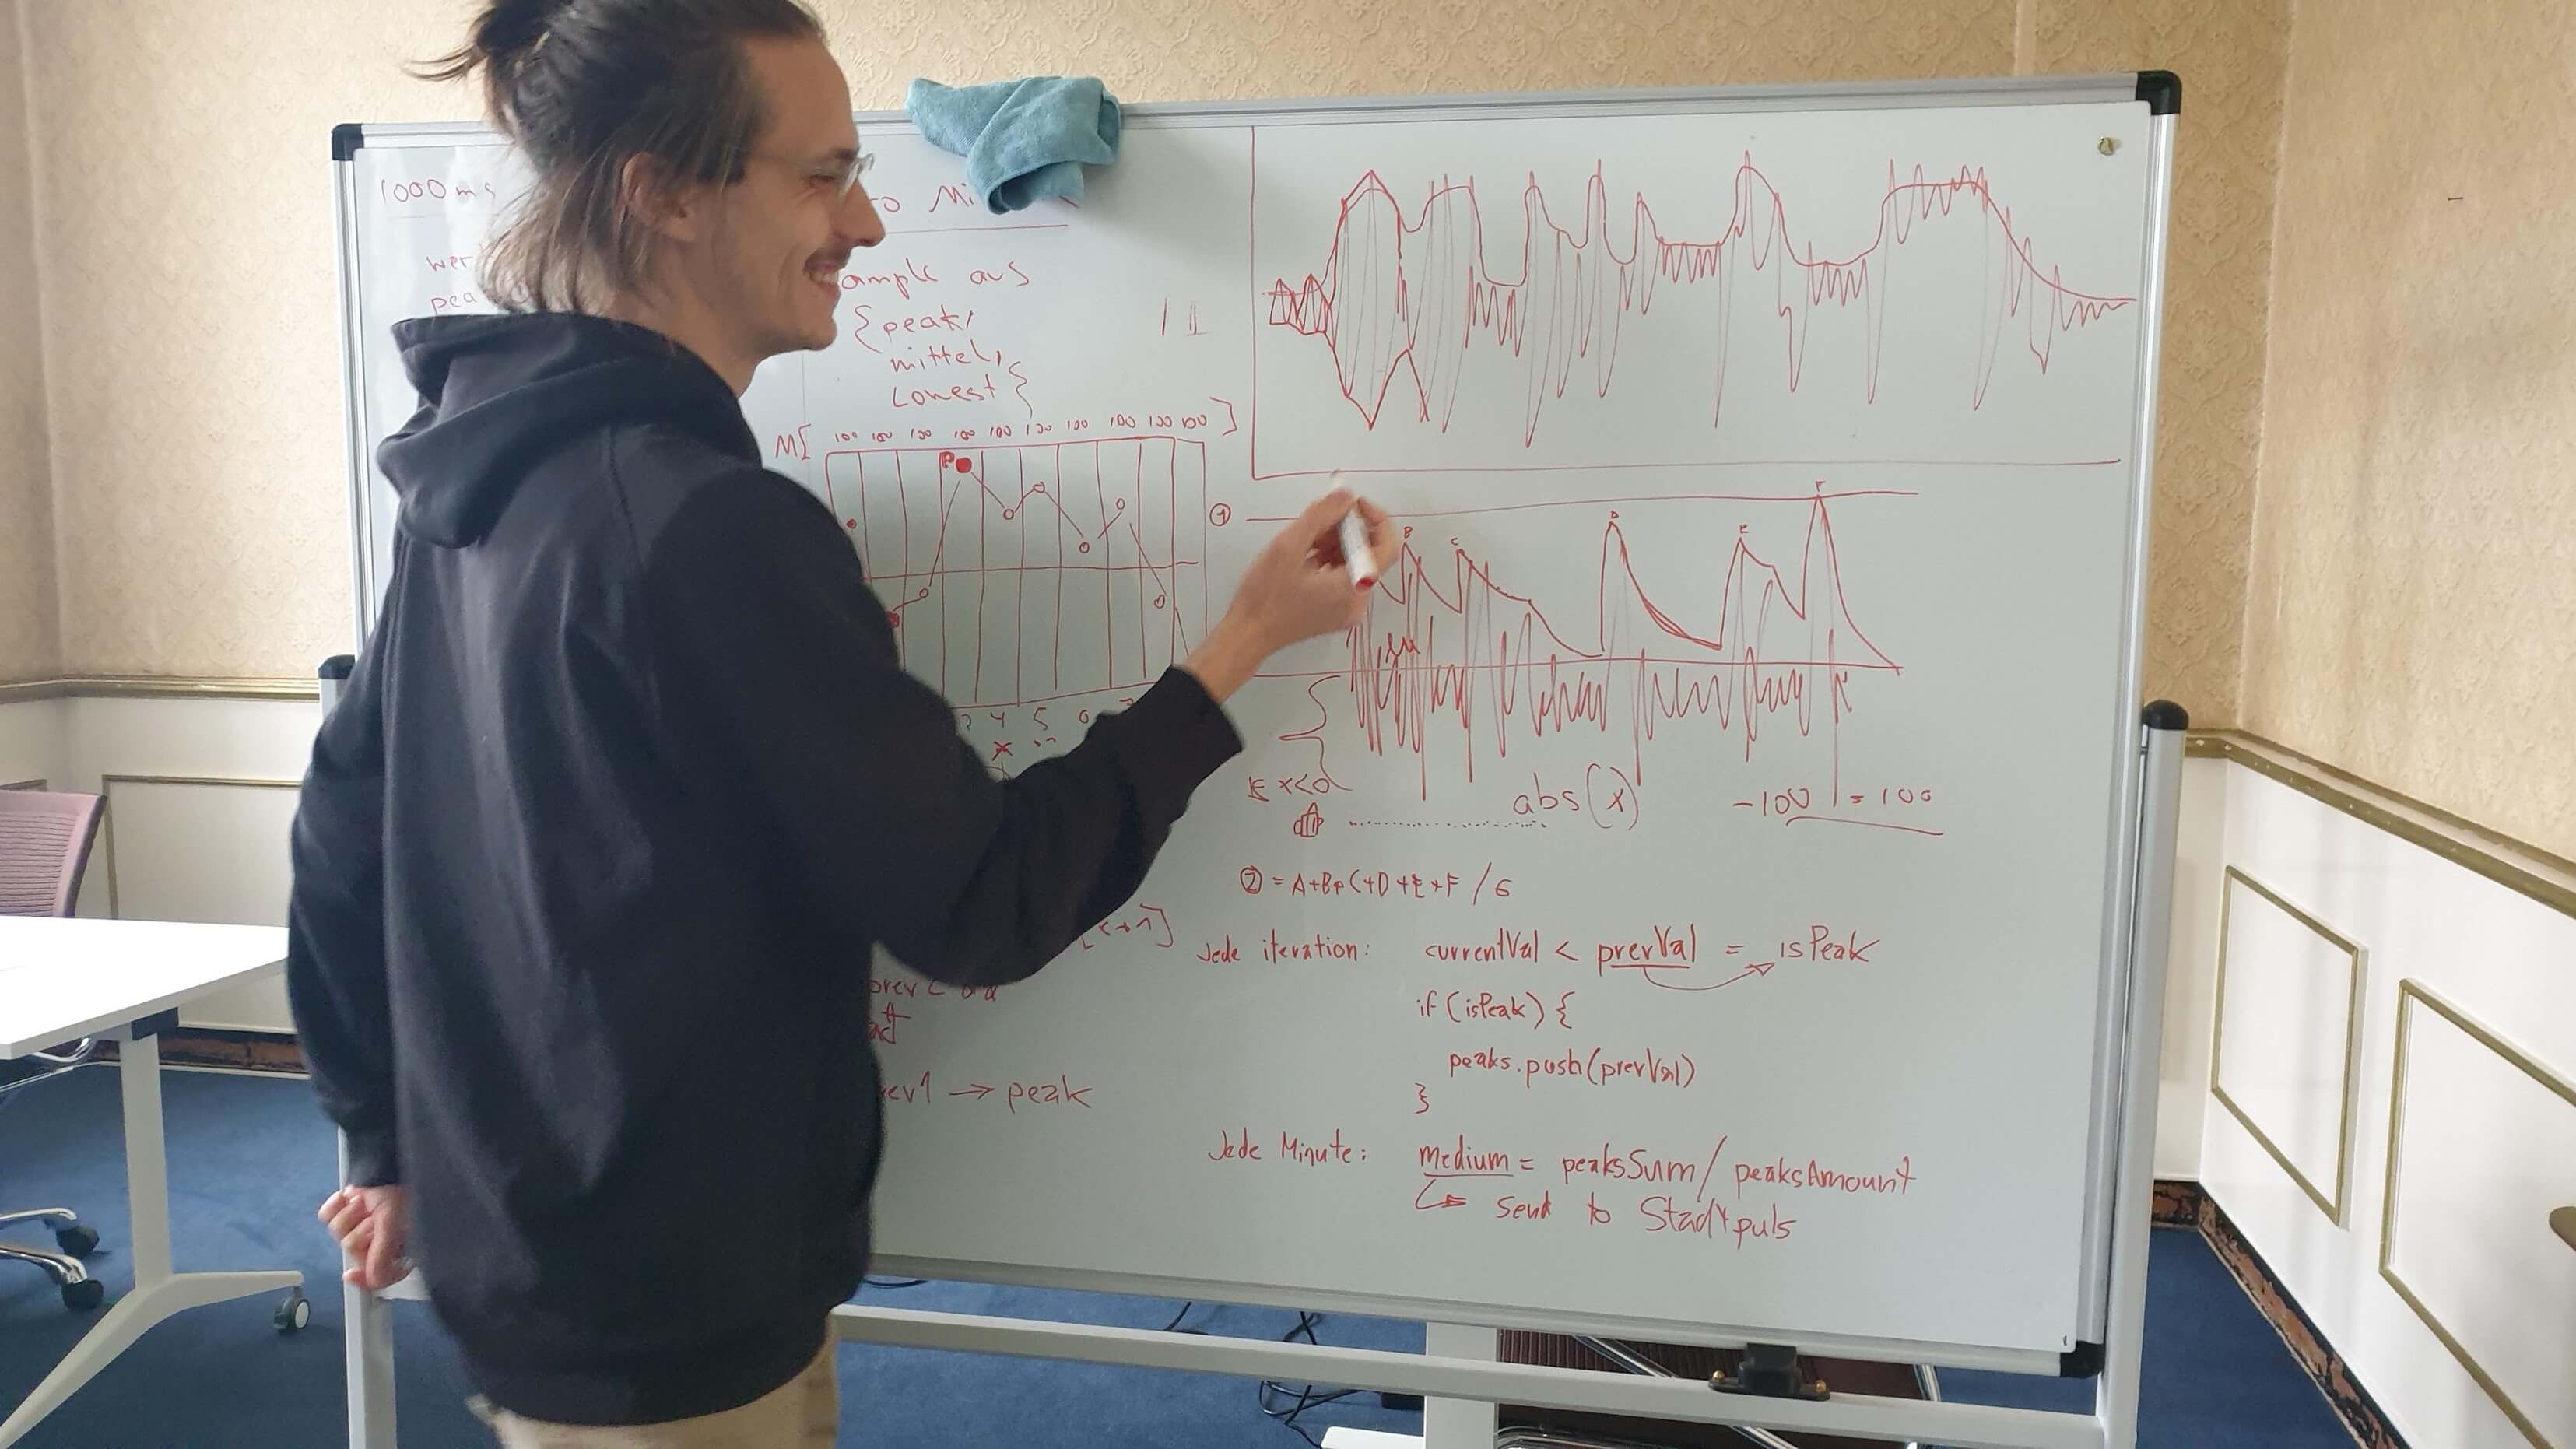 1000ms
ample aus
{peak,
mittel,
Lowest}
M[ 100 100 100 100 100 100 100 100 100 100 ]
P
4 5 6 7
→ peak
①
B C D E F
x<0
abs(x)
-100 = 100
② = A+B+C+D+E+F / 6
Jede iteration: currentVal < prevVal = isPeak
if (isPeak) {
peaks.push(prevVal)
}
Jede Minute: medium = peaksSum / peaksAmount
↳ send to Stadtpuls